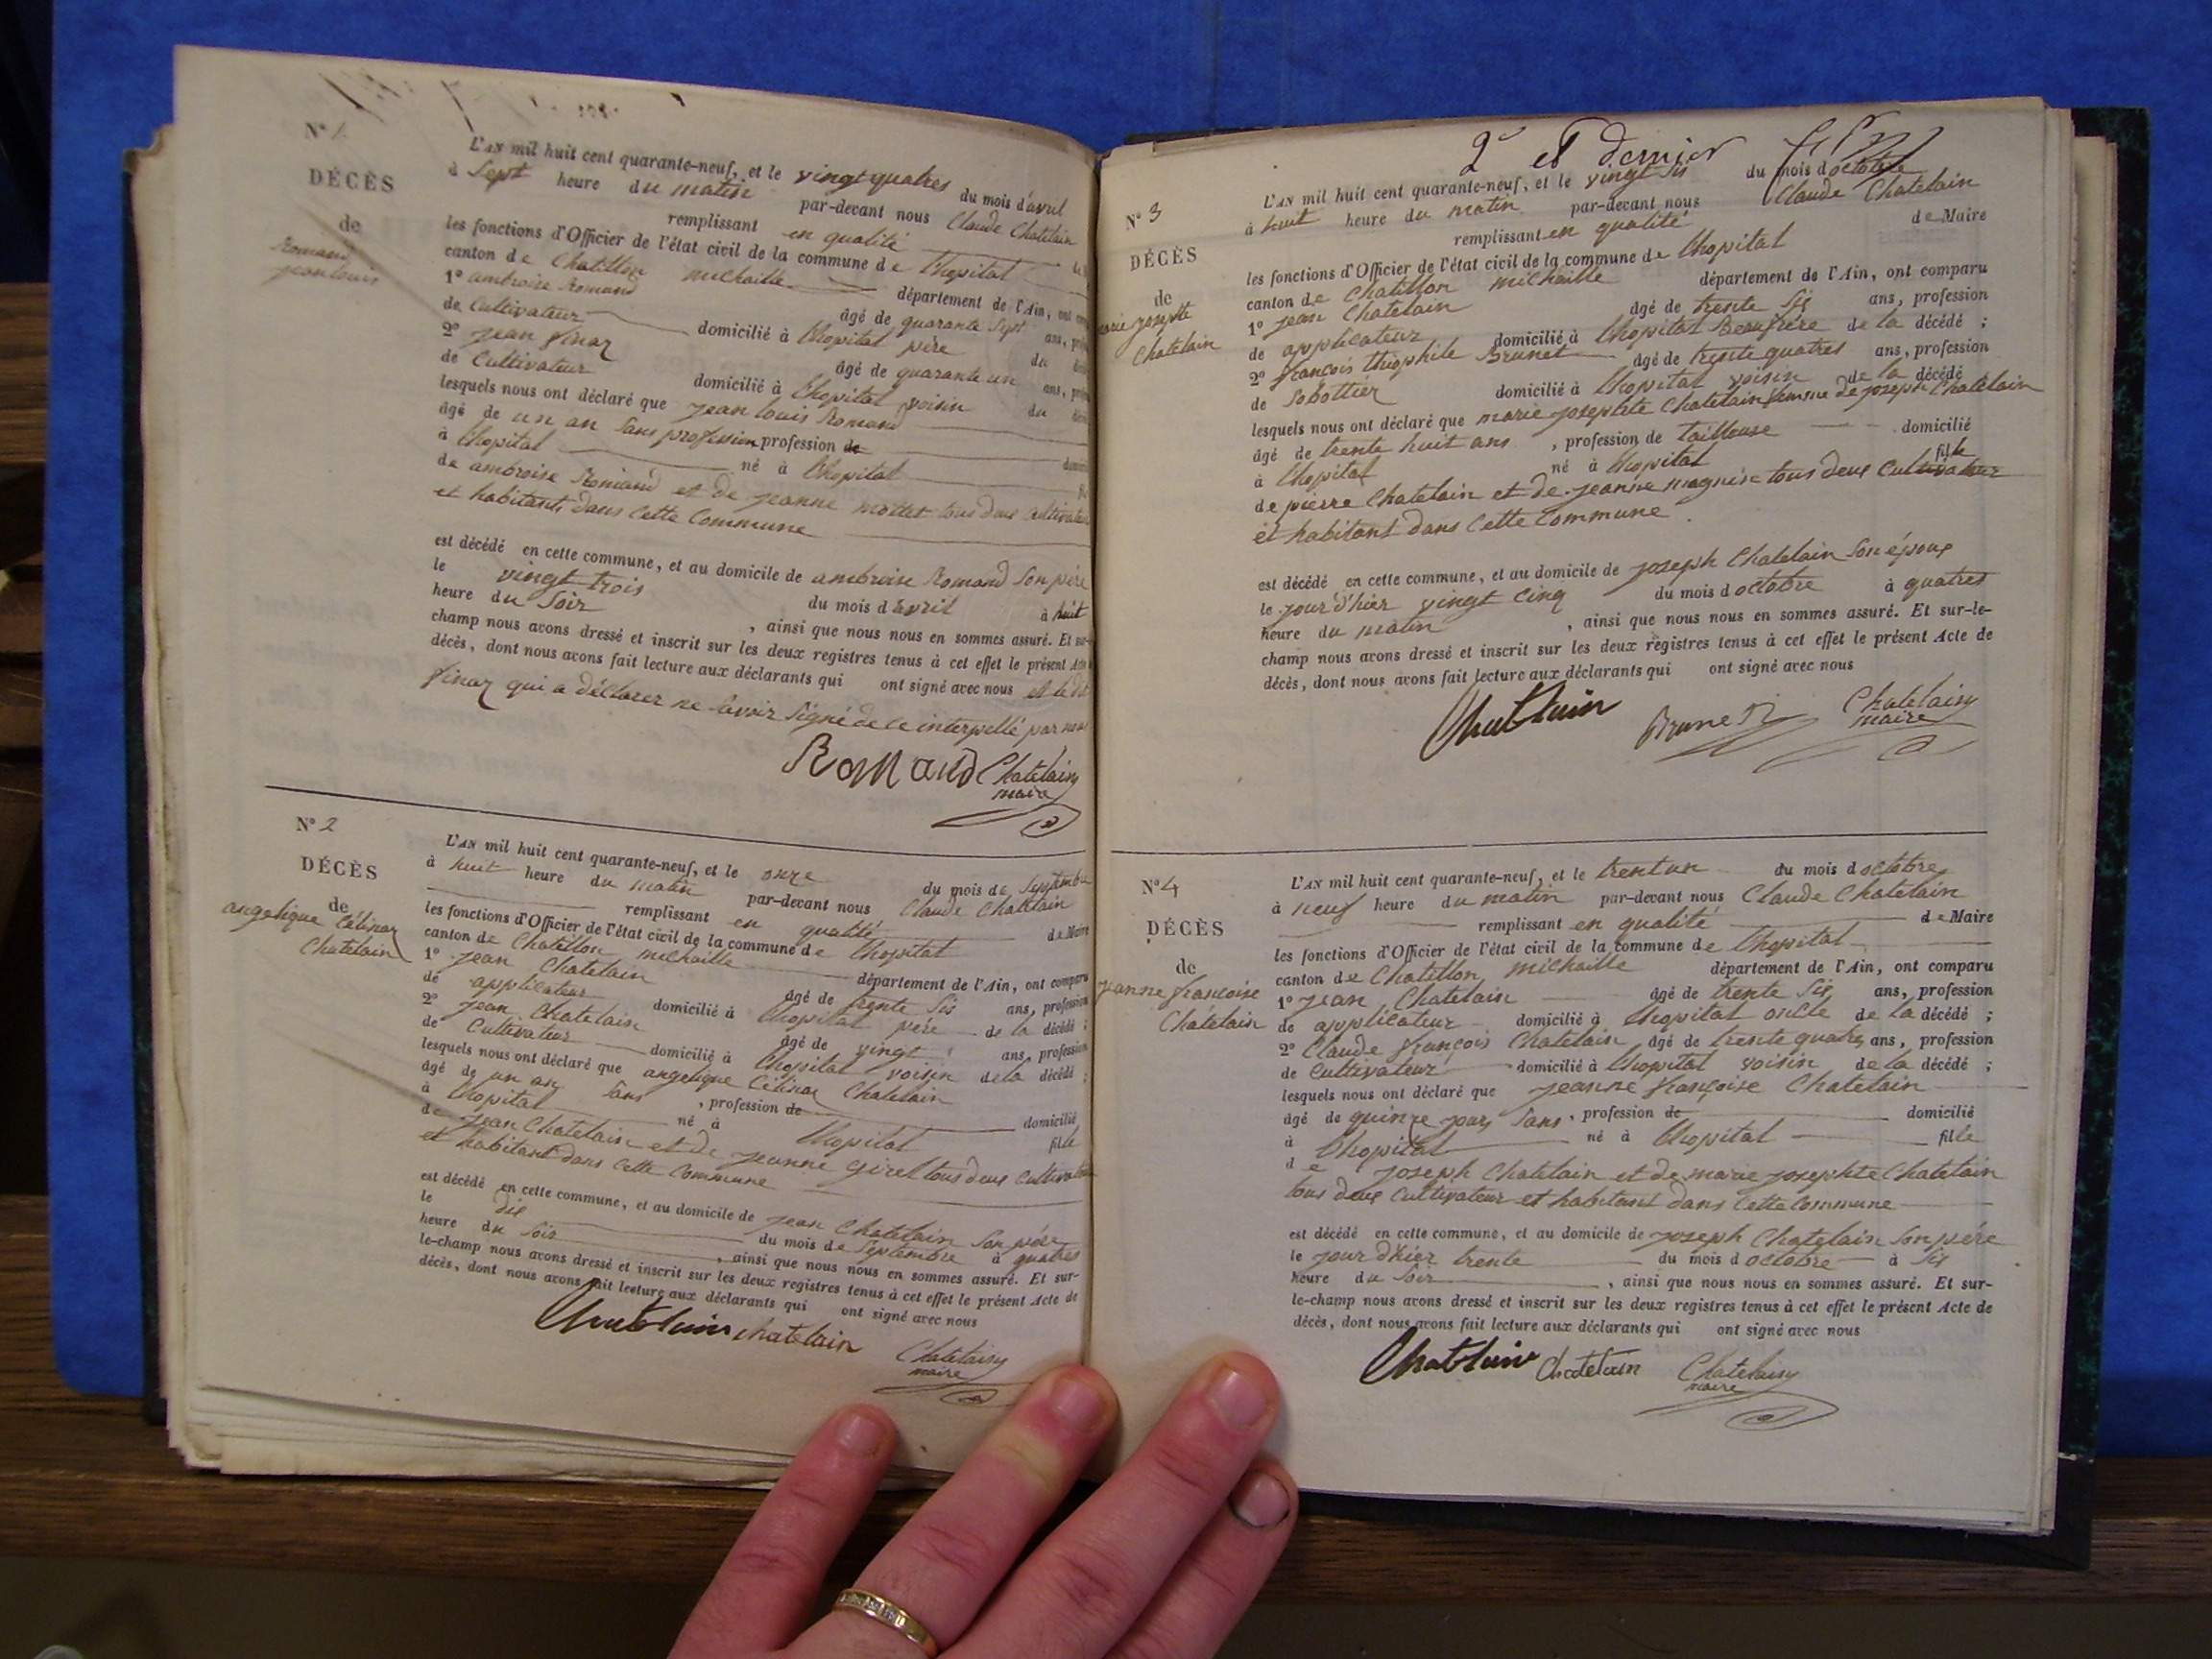 N° 1
DÉCÈS
de
Romand
jean louis
L'AN mil huit cent quarante-neuf, et le vingt quatres du mois d'avril
à Sept heure du matin par-devant nous Claude Chatelain
remplissant en qualité
les fonctions d'Officier de l'état civil de la commune de lhopital
canton de Chatillon michaille département de l'Ain, ont
1° ambroise Romand âgé de quarante Sept ans,
de Cultivateur domicilié à lhopital père du
2° jean finaz âgé de quarante un ans,
de Cultivateur domicilié à lhopital voisin du
lesquels nous ont déclaré que jean louis Romand
âgé de un an Sans profession profession de
à lhopital né à lhopital
de ambroise Romand et de jeanne mottet tous deux Cultivateur
et habitants dans Cette Commune
est décédé en cette commune, et au domicile de ambroise Romand Son père
le vingt trois du mois d'avril à huit
heure du Soir , ainsi que nous nous en sommes assuré. Et sur-
champ nous avons dressé et inscrit sur les deux registres tenus à cet effet le présent Acte
décès, dont nous avons fait lecture aux déclarants qui ont signé avec nous et le dit
finaz qui a déclarer ne Savoir Signé de ce interpellé par nous
Romand Chatelain
maire
N° 2
DÉCÈS
de
angelique Célinaz
Chatelain
L'AN mil huit cent quarante-neuf, et le onze du mois de Septembre
à huit heure du matin par-devant nous Claude Chatelain
remplissant en qualité de Maire
les fonctions d'Officier de l'état civil de la commune de lhopital
canton de Chatillon michaille département de l'Ain, ont comparu
1° jean Chatelain âgé de trente Sis ans, profession
de applicateur domicilié à lhopital père de la décédé ;
2° jean Chatelain âgé de vingt ans, profession
de Cultivateur domicilié à lhopital voisin de la décédé ;
lesquels nous ont déclaré que angelique Célinaz Chatelain
âgé de un an Sans , profession de domicilié
à lhopital né à lhopital fille
de jean Chatelain et de jeanne girel tous deux Cultivateur
et habitant dans Cette Commune
est décédé en cette commune, et au domicile de jean Chatelain Son père
le dis du mois de Septembre à quatres
heure du Soir , ainsi que nous nous en sommes assuré. Et sur-
le-champ nous avons dressé et inscrit sur les deux registres tenus à cet effet le présent Acte de
décès, dont nous avons fait lecture aux déclarants qui ont signé avec nous
Chatelain chatelain Chatelain
maire
2e et dernier
N° 3
DÉCÈS
de
marie josephte
Chatelain
L'AN mil huit cent quarante-neuf, et le vingt Sis du mois d'octobre
à huit heure du matin par-devant nous Claude Chatelain
remplissant en qualité de Maire
les fonctions d'Officier de l'état civil de la commune de lhopital
canton de Chatillon michaille département de l'Ain, ont comparu
1° jean Chatelain âgé de trente Sis ans, profession
de applicateur domicilié à lhopital Beaufrère de la décédé ;
2° françois théophile Brunet âgé de trente quatres ans, profession
de Sobottier domicilié à lhopital voisin de la décédé
lesquels nous ont déclaré que marie josephte Chatelain femme de joseph Chatelain
âgé de trente huit ans , profession de tailleuse domicilié
à lhopital né à lhopital fille
de pierre Chatelain et de jeanne magnin tous deux Cultivateur
et habitant dans Cette Commune
est décédé en cette commune, et au domicile de joseph Chatelain Son époux
le jour d'hier vingt Cinq du mois d'octobre à quatres
heure du matin , ainsi que nous nous en sommes assuré. Et sur-le-
champ nous avons dressé et inscrit sur les deux registres tenus à cet effet le présent Acte de
décès, dont nous avons fait lecture aux déclarants qui ont signé avec nous
Chatelain Brunet Chatelain
maire
N° 4
DÉCÈS
de
jeanne françoise
Chatelain
L'AN mil huit cent quarante-neuf, et le trent un du mois d'octobre
à neuf heure du matin par-devant nous Claude Chatelain
remplissant en qualité de Maire
les fonctions d'Officier de l'état civil de la commune de lhopital
canton de Chatillon michaille département de l'Ain, ont comparu
1° jean Chatelain âgé de trente Sis ans, profession
de applicateur domicilié à lhopital oncle de la décédé ;
2° Claude françois Chatelain âgé de trente quatres ans, profession
de Cultivateur domicilié à lhopital voisin de la décédé ;
lesquels nous ont déclaré que jeanne françoise Chatelain
âgé de quinze jours Sans , profession de domicilié
à lhopital né à lhopital fille
de joseph Chatelain et de marie josephte Chatelain
tous deux Cultivateur et habitant dans Cette Commune
est décédé en cette commune, et au domicile de joseph Chatelain Son père
le jour d'hier trente du mois d'octobre à Sis
heure du Soir , ainsi que nous nous en sommes assuré. Et sur-
le-champ nous avons dressé et inscrit sur les deux registres tenus à cet effet le présent Acte de
décès, dont nous avons fait lecture aux déclarants qui ont signé avec nous
Chatelain Chatelain Chatelain
maire